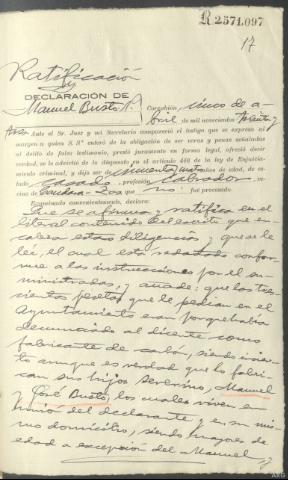 R 2571.097
17
Ratificación
y
DECLARACIÓN DE
Manuel Busto
Corcubión, cinco de a-
bril de mil novecientos
Ante el Sr. Juez y mi Secretario compareció el testigo que se expresa al
margen a quien S. Sª enteró de la obligación de ser veraz y penas señaladas
al delito de falso testimonio, prestó juramento en forma legal, ofreció decir
verdad, se le advirtió de lo dispuesto en el artículo 446 de la ley de Enjuicia-
miento criminal, y dijo ser de cincuenta años de edad, de esta-
do casado, profesión labrador ve-
cino de que no fué procesado.
Examinado convenientemente, declara:
Que se afirma y ratifica en el
literal contenido del escrito que en-
cabeza estas diligencias y que se le
leé, el cual está redactado confor-
me a las instrucciones por el su-
ministradas, y añade: que las tres-
cientas pesetas que le pedían en el
Ayuntamiento eran porque había
denunciado al dicente como
fabricante de carbón, siendo incier-
to aunque es verdad que lo fabri-
can sus hijos Severino, Manuel
y José Busto, los cuales viven en
unión del declarante y en su mis-
mo domicilio, siendo mayores de
edad a excepción del Manuel y